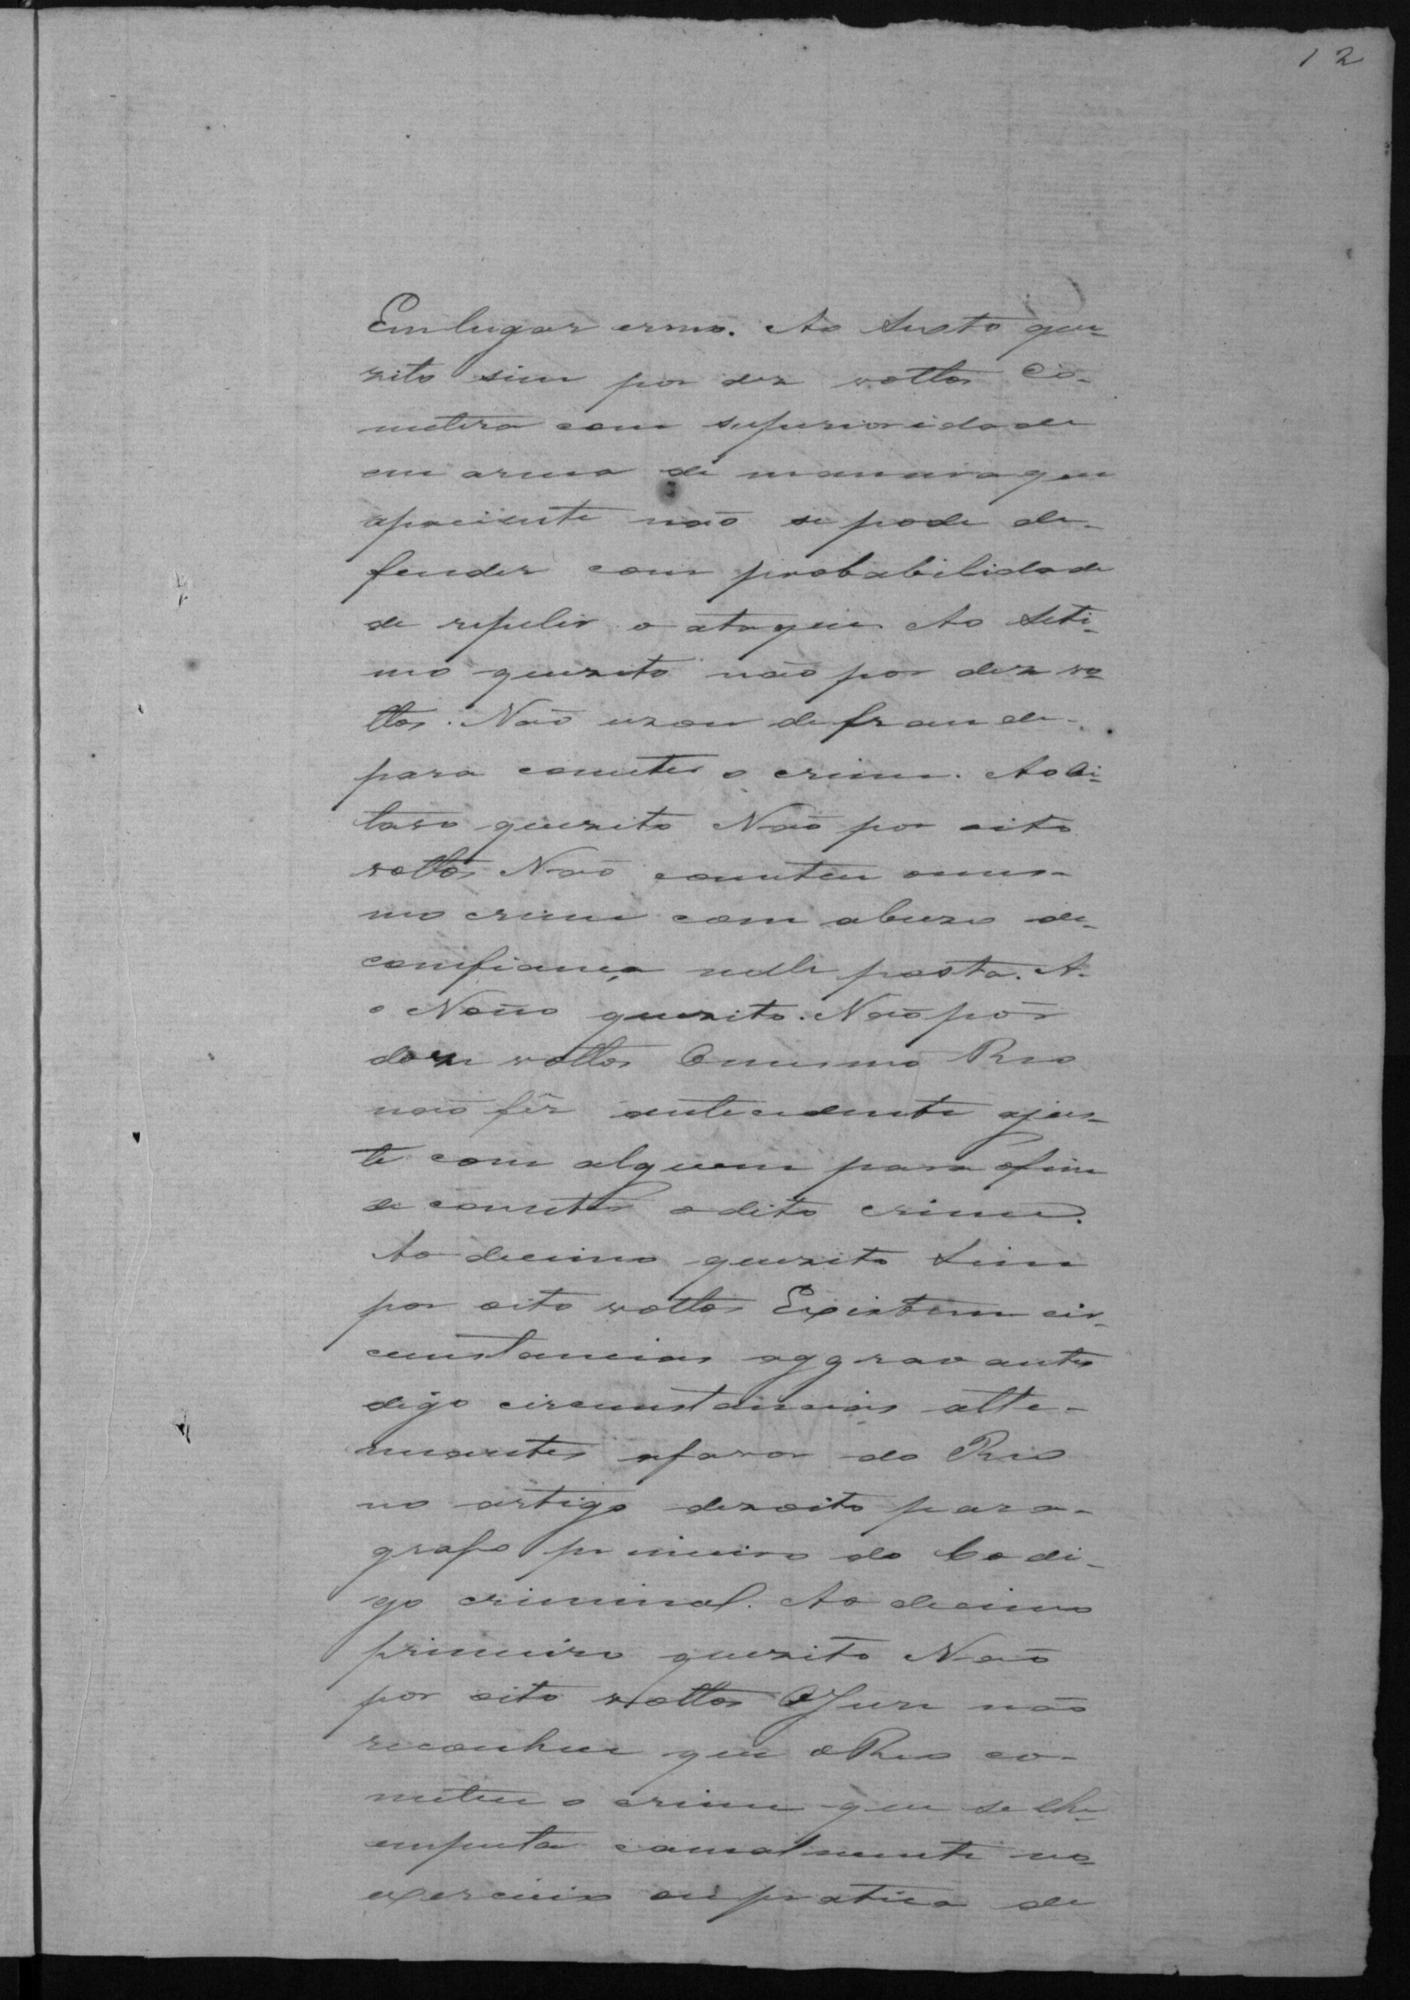 12
Em lugar ermo. Ao Sesto que-
zito sim por dez vottos Co-
metera com superioridade
em arma de maneira que
apaciente não se pode de-
fender com probabilidade
de repelir o ataque. Ao Seti-
mo quezito não por dez vo-
ttos. Não uzou de fraude
para cometer o crime. Ao Oi-
tavo quezito Não por oito
vottos Não cometeu omes-
mo crime com abuzo de
confiança nelle posta. A-
o Nono quezito. Não por
doze vottos Omesmo Reo
não fêz antecedente ajus-
te com alguem para ofim
de cometer odito crime.
Ao decimo quezito Sim
por oito vottos Existem cir-
cunstancias aggravantes
digo circunstancias atte-
nuantes afavor do Reo
no artigo dezoito para-
grafo primeiro do Codi-
go criminal. Ao decimo
primeiro quezito Não
por oito vottos OJury não
reconhece que oReo co-
meteu o crime que se lhe
emputa casualmente no
exercicio ou pratica de